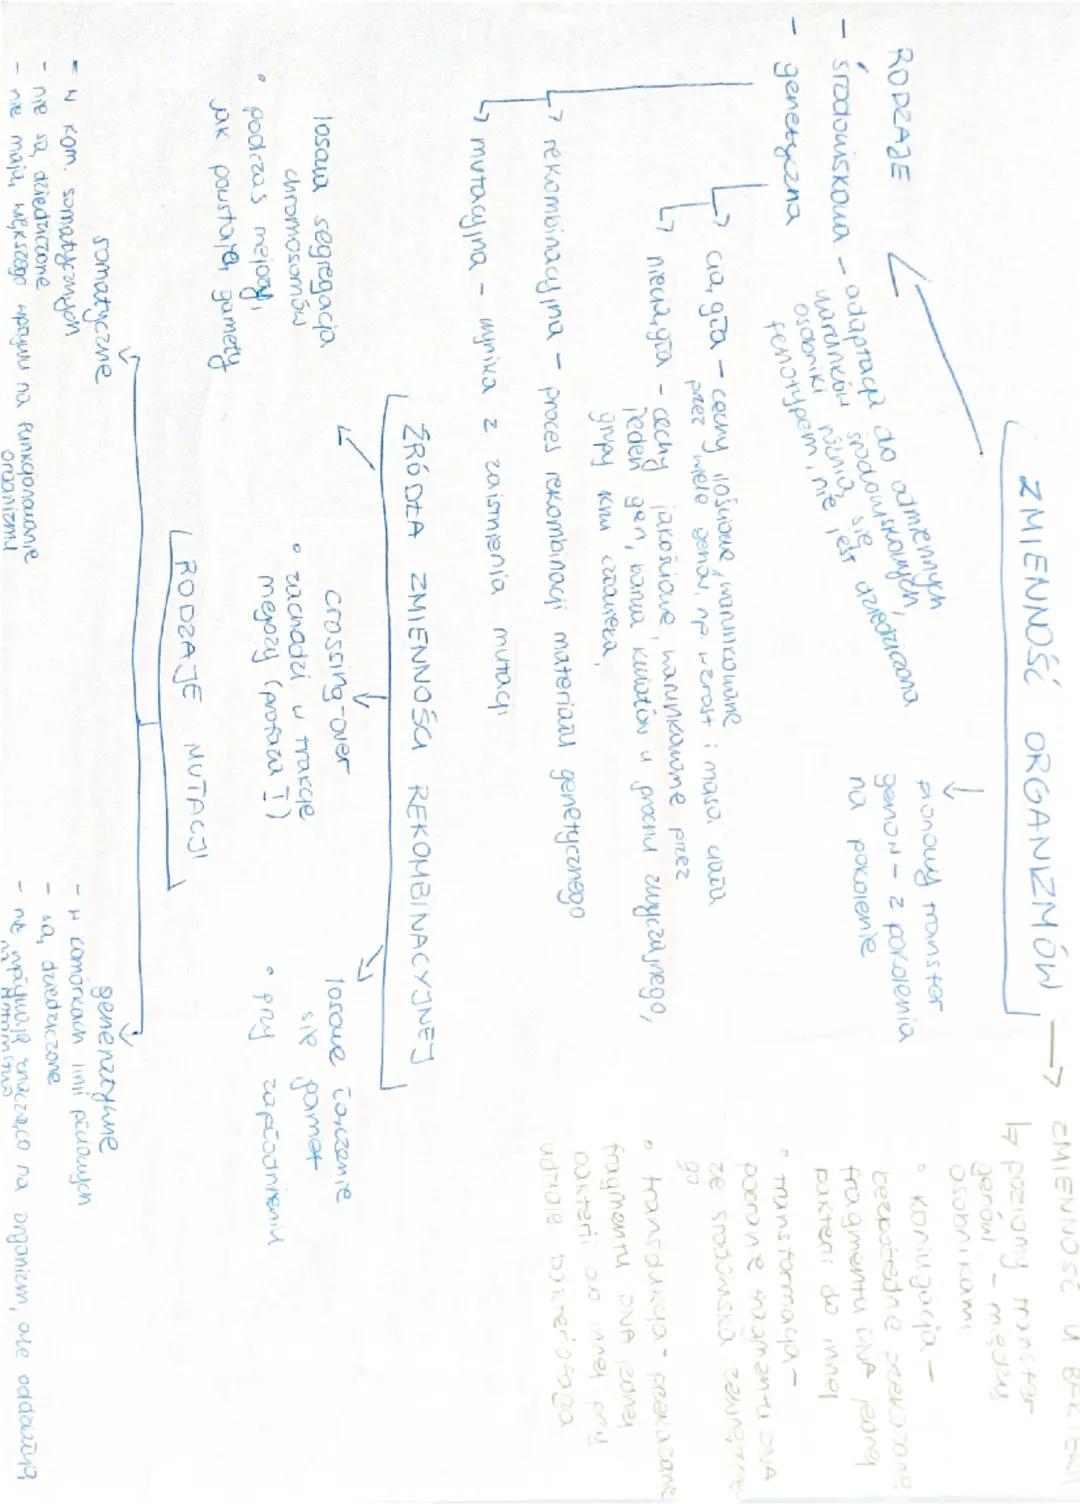 ZMIENNOŚĆ ORGANIZMÓW
RODZAJE
- środowiskowa - adaptacja do odmiennych
warunków środowiskowych,
osobniki różnią się
fenotypem, nie jest dziedziczona
- genetyczna
ciągła - cechy ilościowe, warunkowane
przez wiele genów, np wzrost i masa ciała
nieciągła - cechy jakościowe, warunkowane przez
jeden gen, barwa kwiatów u grochu zwyczajnego,
grupy krwi człowieka,
rekombinacyjna - proces rekombinacji materiału genetycznego
mutacyjna - wynika z zaistnienia mutacji
pionowy transfer
genów - z pokolenia
na pokolenie
ZMIENNOŚĆ U BAKTERII
poziomy transfer
genów - między
osobnikami
• koniugacja -
bezpośrednie przekazanie
fragmentu DNA jednej
bakterii do innej
• transformacja -
pobranie fragmentu DNA
ze środowiska zewnętrzne
go
• transdukcja - przekazanie
fragmentu DNA jednej
bakterii do innej przy
udziale bakteriofaga
ŹRÓDŁA ZMIENNOŚCI REKOMBINACYJNEJ
losowa segregacja
chromosomów
• podczas mejozy,
jak powstają gamety
crossing-over
• zachodzi w trakcie
mejozy (profaza I)
losowe łączenie
się gamet
• przy zapłodnieniu
RODZAJE MUTACJI
somatyczne
- w kom. somatycznych
- nie są dziedziczone
- nie mają większego wpływu na funkcjonowanie
organizmu
generatywne
- w komórkach linii płciowych
- są dziedziczone
- nie wpływają znacząco na organizm, ale oddziałują
na potomstwo